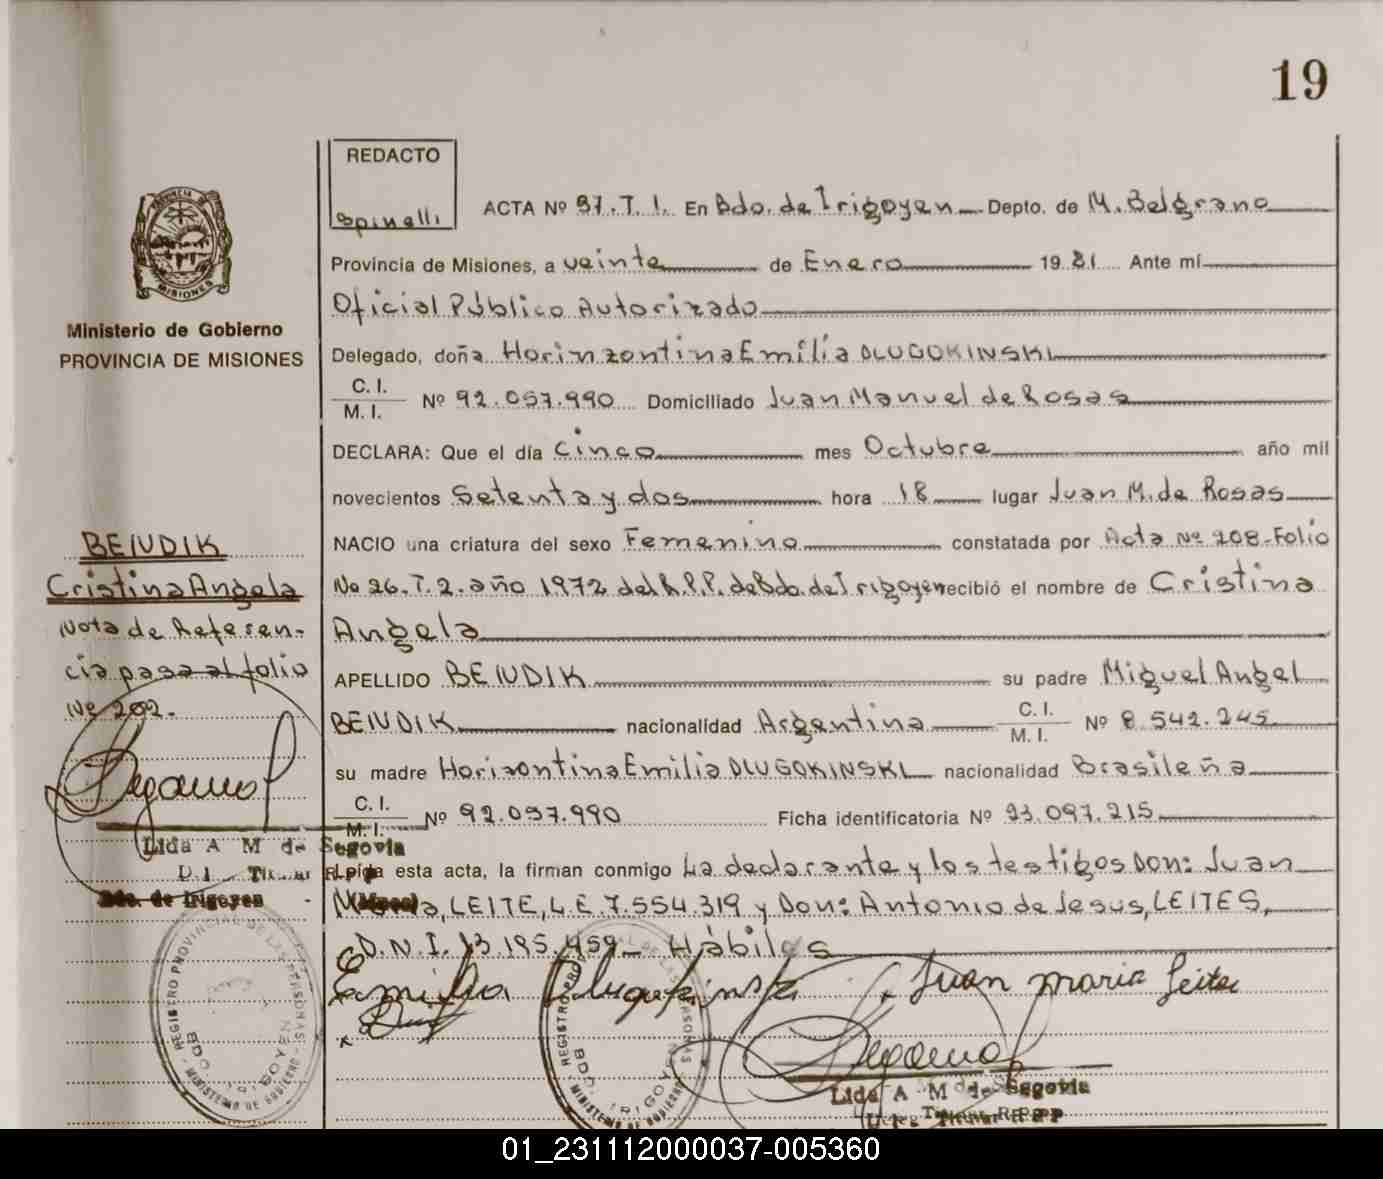 19
REDACTO
Spinelli
ACTA Nº 37.T.1. En Bdo. de Irigoyen Depto. de M. Belgrano
PROVINCIA DE
MISIONES
Ministerio de Gobierno
PROVINCIA DE MISIONES
Provincia de Misiones, a veinte de Enero 19 81 Ante mí
Oficial Público Autorizado
Delegado, doña Horinzontina Emilia DLUGOKINSKI
C. I.
M. I. Nº 92.097.990 Domiciliado Juan Manuel de Rosas
DECLARA: Que el día cinco mes Octubre año mil
novecientos Setenta y dos hora 18 lugar Juan M. de Rosas
NACIO una criatura del sexo Femenino constatada por Acta Nº 208-Folio
No 26. T. 2. año 1972 del R.P.P. de Bdo. de Irigoyen recibió el nombre de Cristina
Angela
APELLIDO BENDIK su padre Miguel Angel
BENDIK nacionalidad Argentina C. I.
M. I. Nº 8.542.245
su madre Horizontina Emilia DLUGOKINSKI nacionalidad Brasileña
C. I.
M. I. Nº 92.097.990 Ficha identificatoria Nº 23.097.215
Leida esta acta, la firman conmigo La declarante y los testigos Don: Juan
María, LEITE, L.E. 7.554.319 y Don: Antonio de Jesus, LEITES,
D.N.I. 13.195.459 Hábiles
BENDIK
Cristina Angela
Nota de Referen-
cia pasa al folio
Nº 202.
Lida A M de Segovia
Titular R.P.p
Bdo. de Irigoyen
REGISTRO PROVINCIAL DE LAS PERSONAS
BDO. IRIGOYEN
MINISTERIO DE GOBIERNO
Emilia Dlugokinski
Juan maria Leite
REGISTRO PROVINCIAL DE LAS PERSONAS
BDO. IRIGOYEN
MINISTERIO DE GOBIERNO
Lida A M de Segovia
Titular R.P.p
01_231112000037-005360